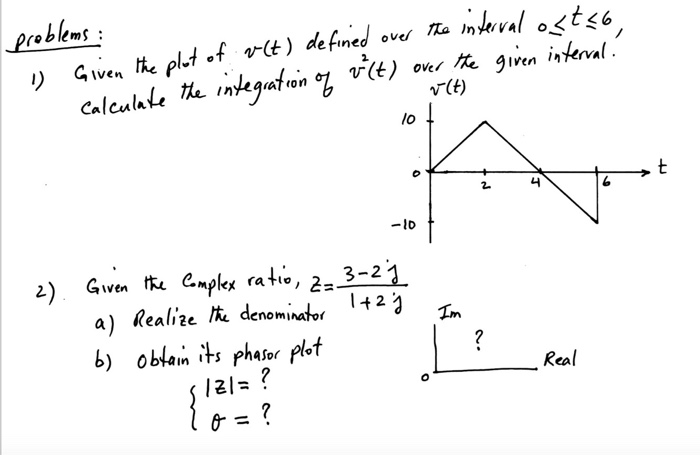 problems:
1) Given the plot of v(t) defined over the interval 0≤t≤6,
Calculate the integration of v²(t) over the given interval.
v(t)
10
0
2
4
6
t
-10
2). Given the Complex ratio, z = (3-2j)/(1+2j)
a) Realize the denominator
b) Obtain its phasor plot
{ |z| = ?
θ = ?
Im
?
0
Real